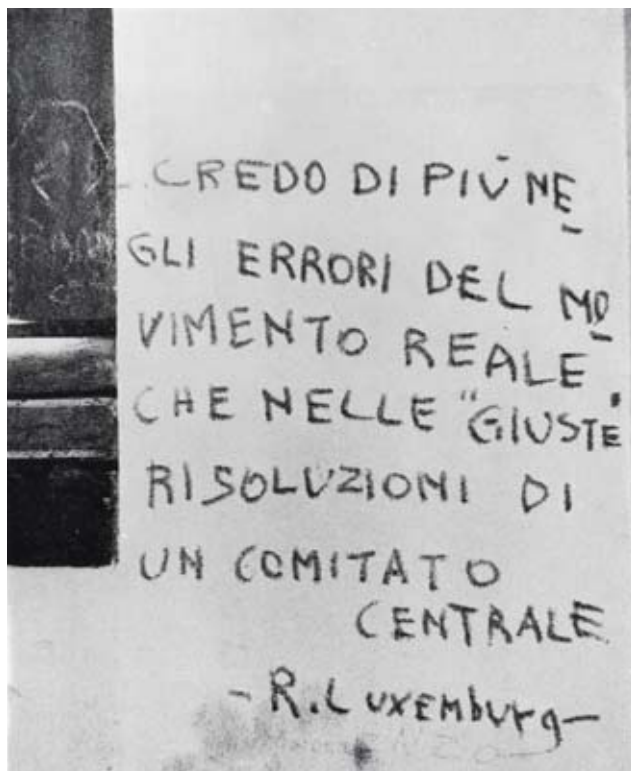 CREDO DI PIÙ NE
GLI ERRORI DEL MO
VIMENTO REALE
CHE NELLE "GIUSTE"
RISOLUZIONI DI
UN COMITATO
CENTRALE
- R. Luxemburg -